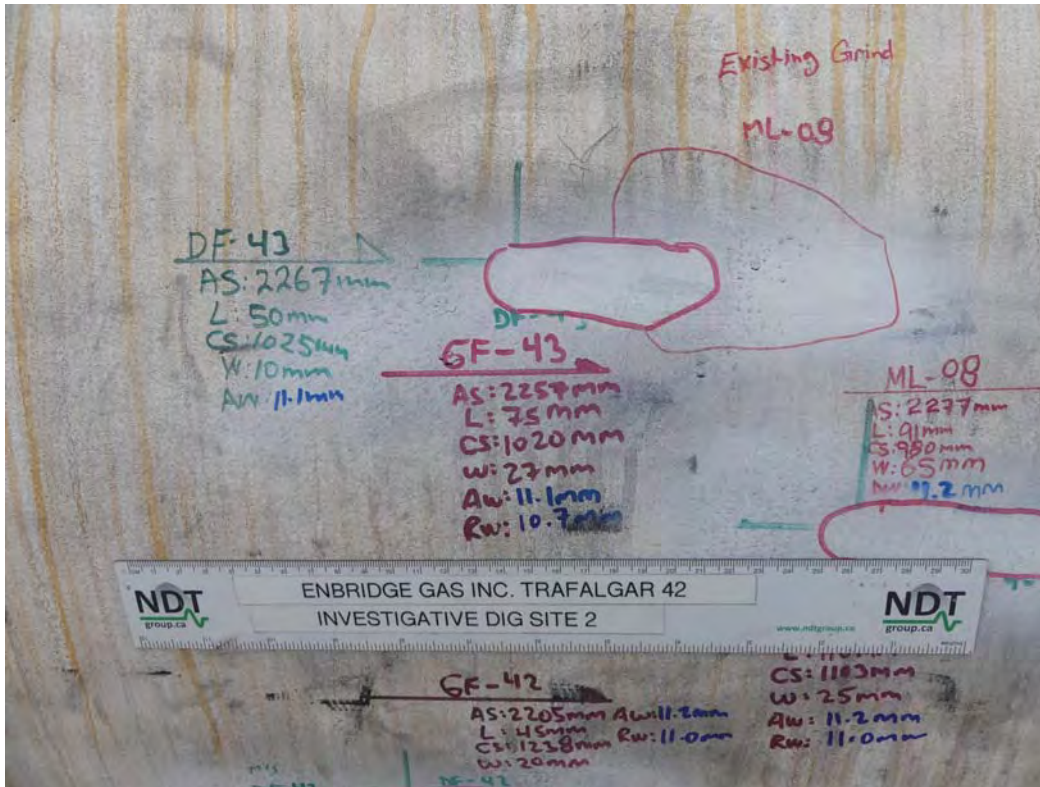 Existing Grind
ML-08
DF-43
AS: 2267mm
L: 50mm
CS: 1025mm
W: 10mm
AW: 11.1mm
DF-43
GF-43
AS: 2257mm
L: 75mm
CS: 1020mm
W: 27mm
AW: 11.1mm
RW: 10.7mm
ML-08
AS: 2277mm
L: 91mm
CS: 980mm
W: 65mm
11.2mm
NDT
group.ca
ENBRIDGE GAS INC. TRAFALGAR 42
INVESTIGATIVE DIG SITE 2
www.ndtgroup.ca
NDT
group.ca
GF-42
AS: 2205mm AW: 11.2mm
L: 45mm RW: 11.0mm
CS: 1238mm
W: 20mm
CS: 1103mm
W: 25mm
AW: 11.2mm
RW: 11.0mm
DF-42